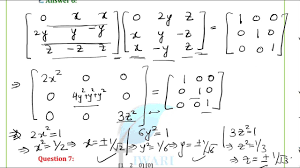 Answer 6:
[0 x x; 2y y -y; z -z z] [0 2y z; x y -z; x -y z] = [1 0 0; 0 1 0; 0 0 1]
⇒ [2x² 0 0; 0 4y²+y²+y² 0; 0 0 3z²] = [1 0 0; 0 1 0; 0 0 1]
⇒ 2x²=1 | 6y²=1 | 3z²=1
⇒ x²=1/2 ⇒ x=±1/√2 | ⇒ y²=1/6 ⇒ y=±1/√6 | ⇒ z²=1/3
⇒ z=±1/√3
Question 7: